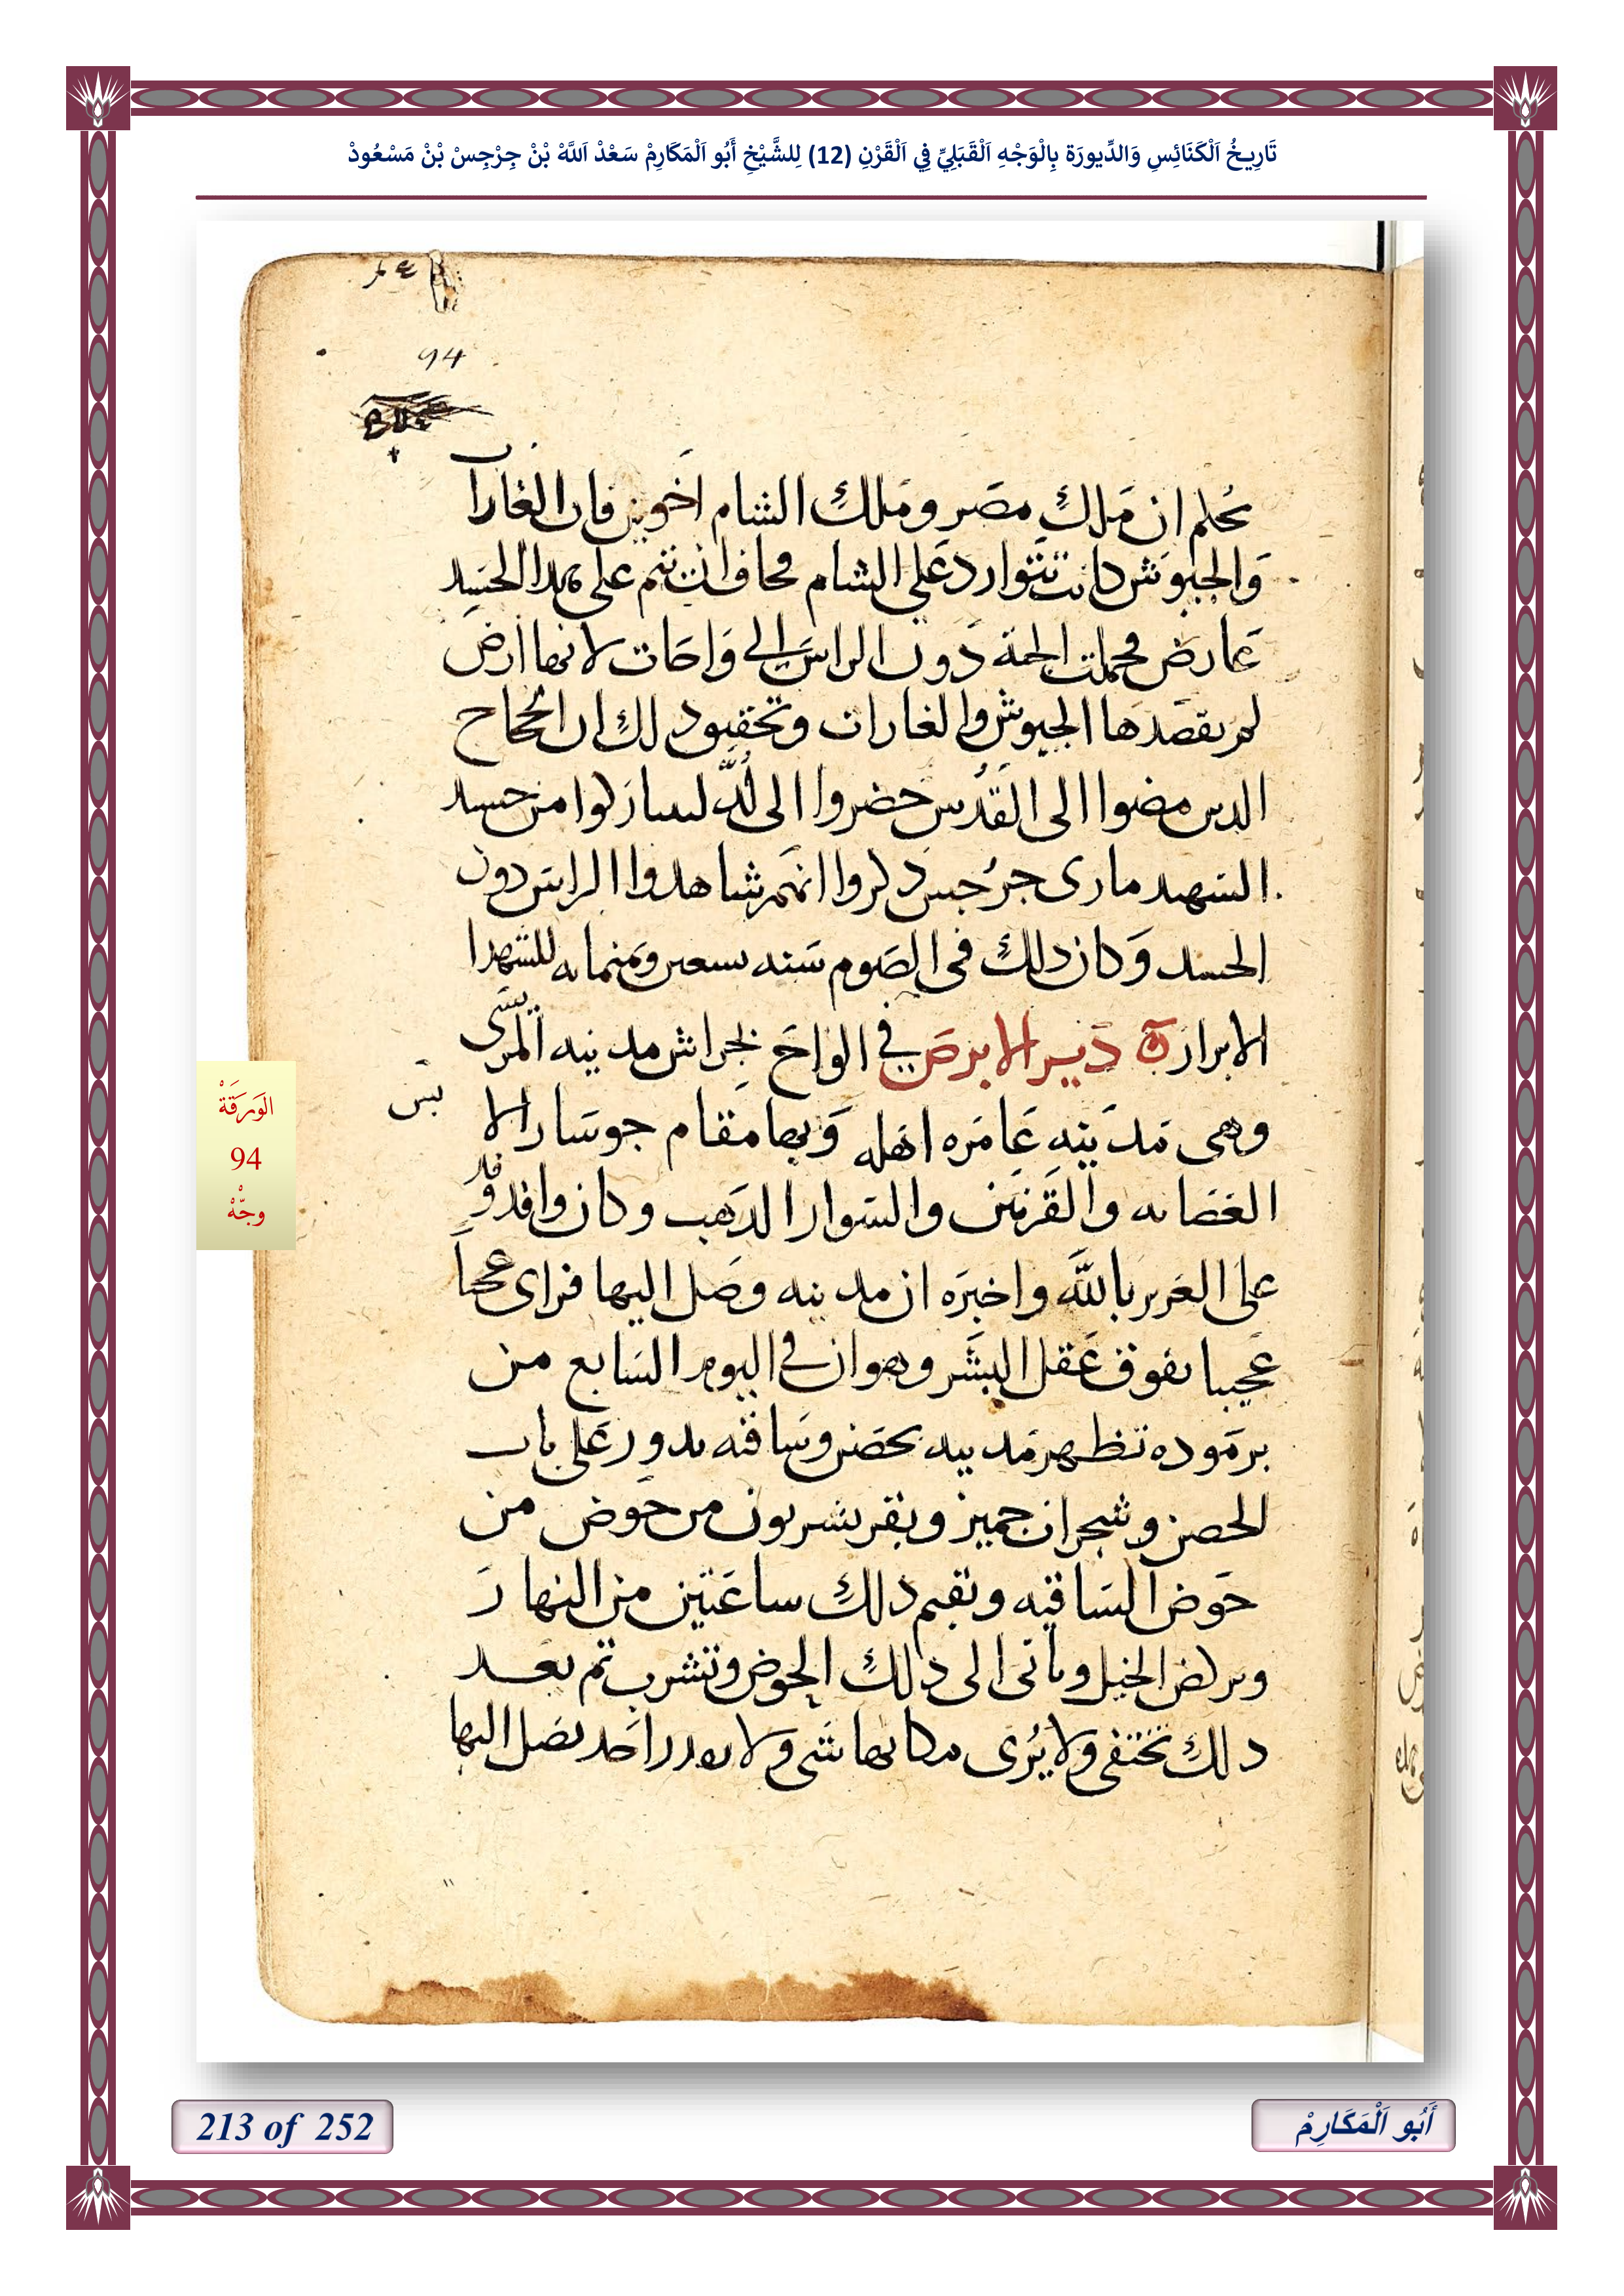 تَارِيخُ اَلْكَنَائِسِ وَالدِّيورَة بِالْوَجْهِ اَلْقَبَلِيِّ فِي اَلْقَرْنِ (12) لِلشَّيْخِ أَبُو اَلْمَكَارِمْ سَعْدْ اَللَّهْ بْنْ جِرْجِسْ بْنْ مَسْعُودْ
94
ان ملك مصر وملك الشام اخوين فان الغارات
والجيوش كانت تتوارد على الشام فخاف ان تتم على هدا الجسد
عارض فحملت الجثة دون الراس الى واحات لانها ارض
لم يقصدها الجيوش والغارات وتحقيق دلك ان الحجاج
الدين مضوا الى القدس حضروا الى لُدّ ليتباركوا من جسد
الشهيد مارى جرجس دكروا انهم شاهدوا الراس دون
الجسد وكان دلك فى الصوم سنه تسعين وثمنمايه للشهدا
الابرار دير الابرص في الواح مدينه
وهى مدينه عامره اهله وبها مقام
والقرنين والسوار الدهب وكان وافد وفد
على العزيز بالله واخبره ان مدينه وصل اليها فراى عجباً
عجيبا يفوق عقل البشر وهو ان في اليوم السابع من
برموده تظهر مدينه بحصن وساقيه يدور على باب
الحصن وشجران جميز وبقر يشربون من حوض من
حوض الساقيه وتقيم دلك ساعتين من النهار
ويركض الخيل وياتى الى دلك الحوض وتشرب تم بعد
دلك تختفى ولا يُرى مكانها شى ولا يقدر احد يصل اليها
الوَرَقَةْ
94
وجْهْ
213 of 252
أَبُو اَلْمَكَارِمْ